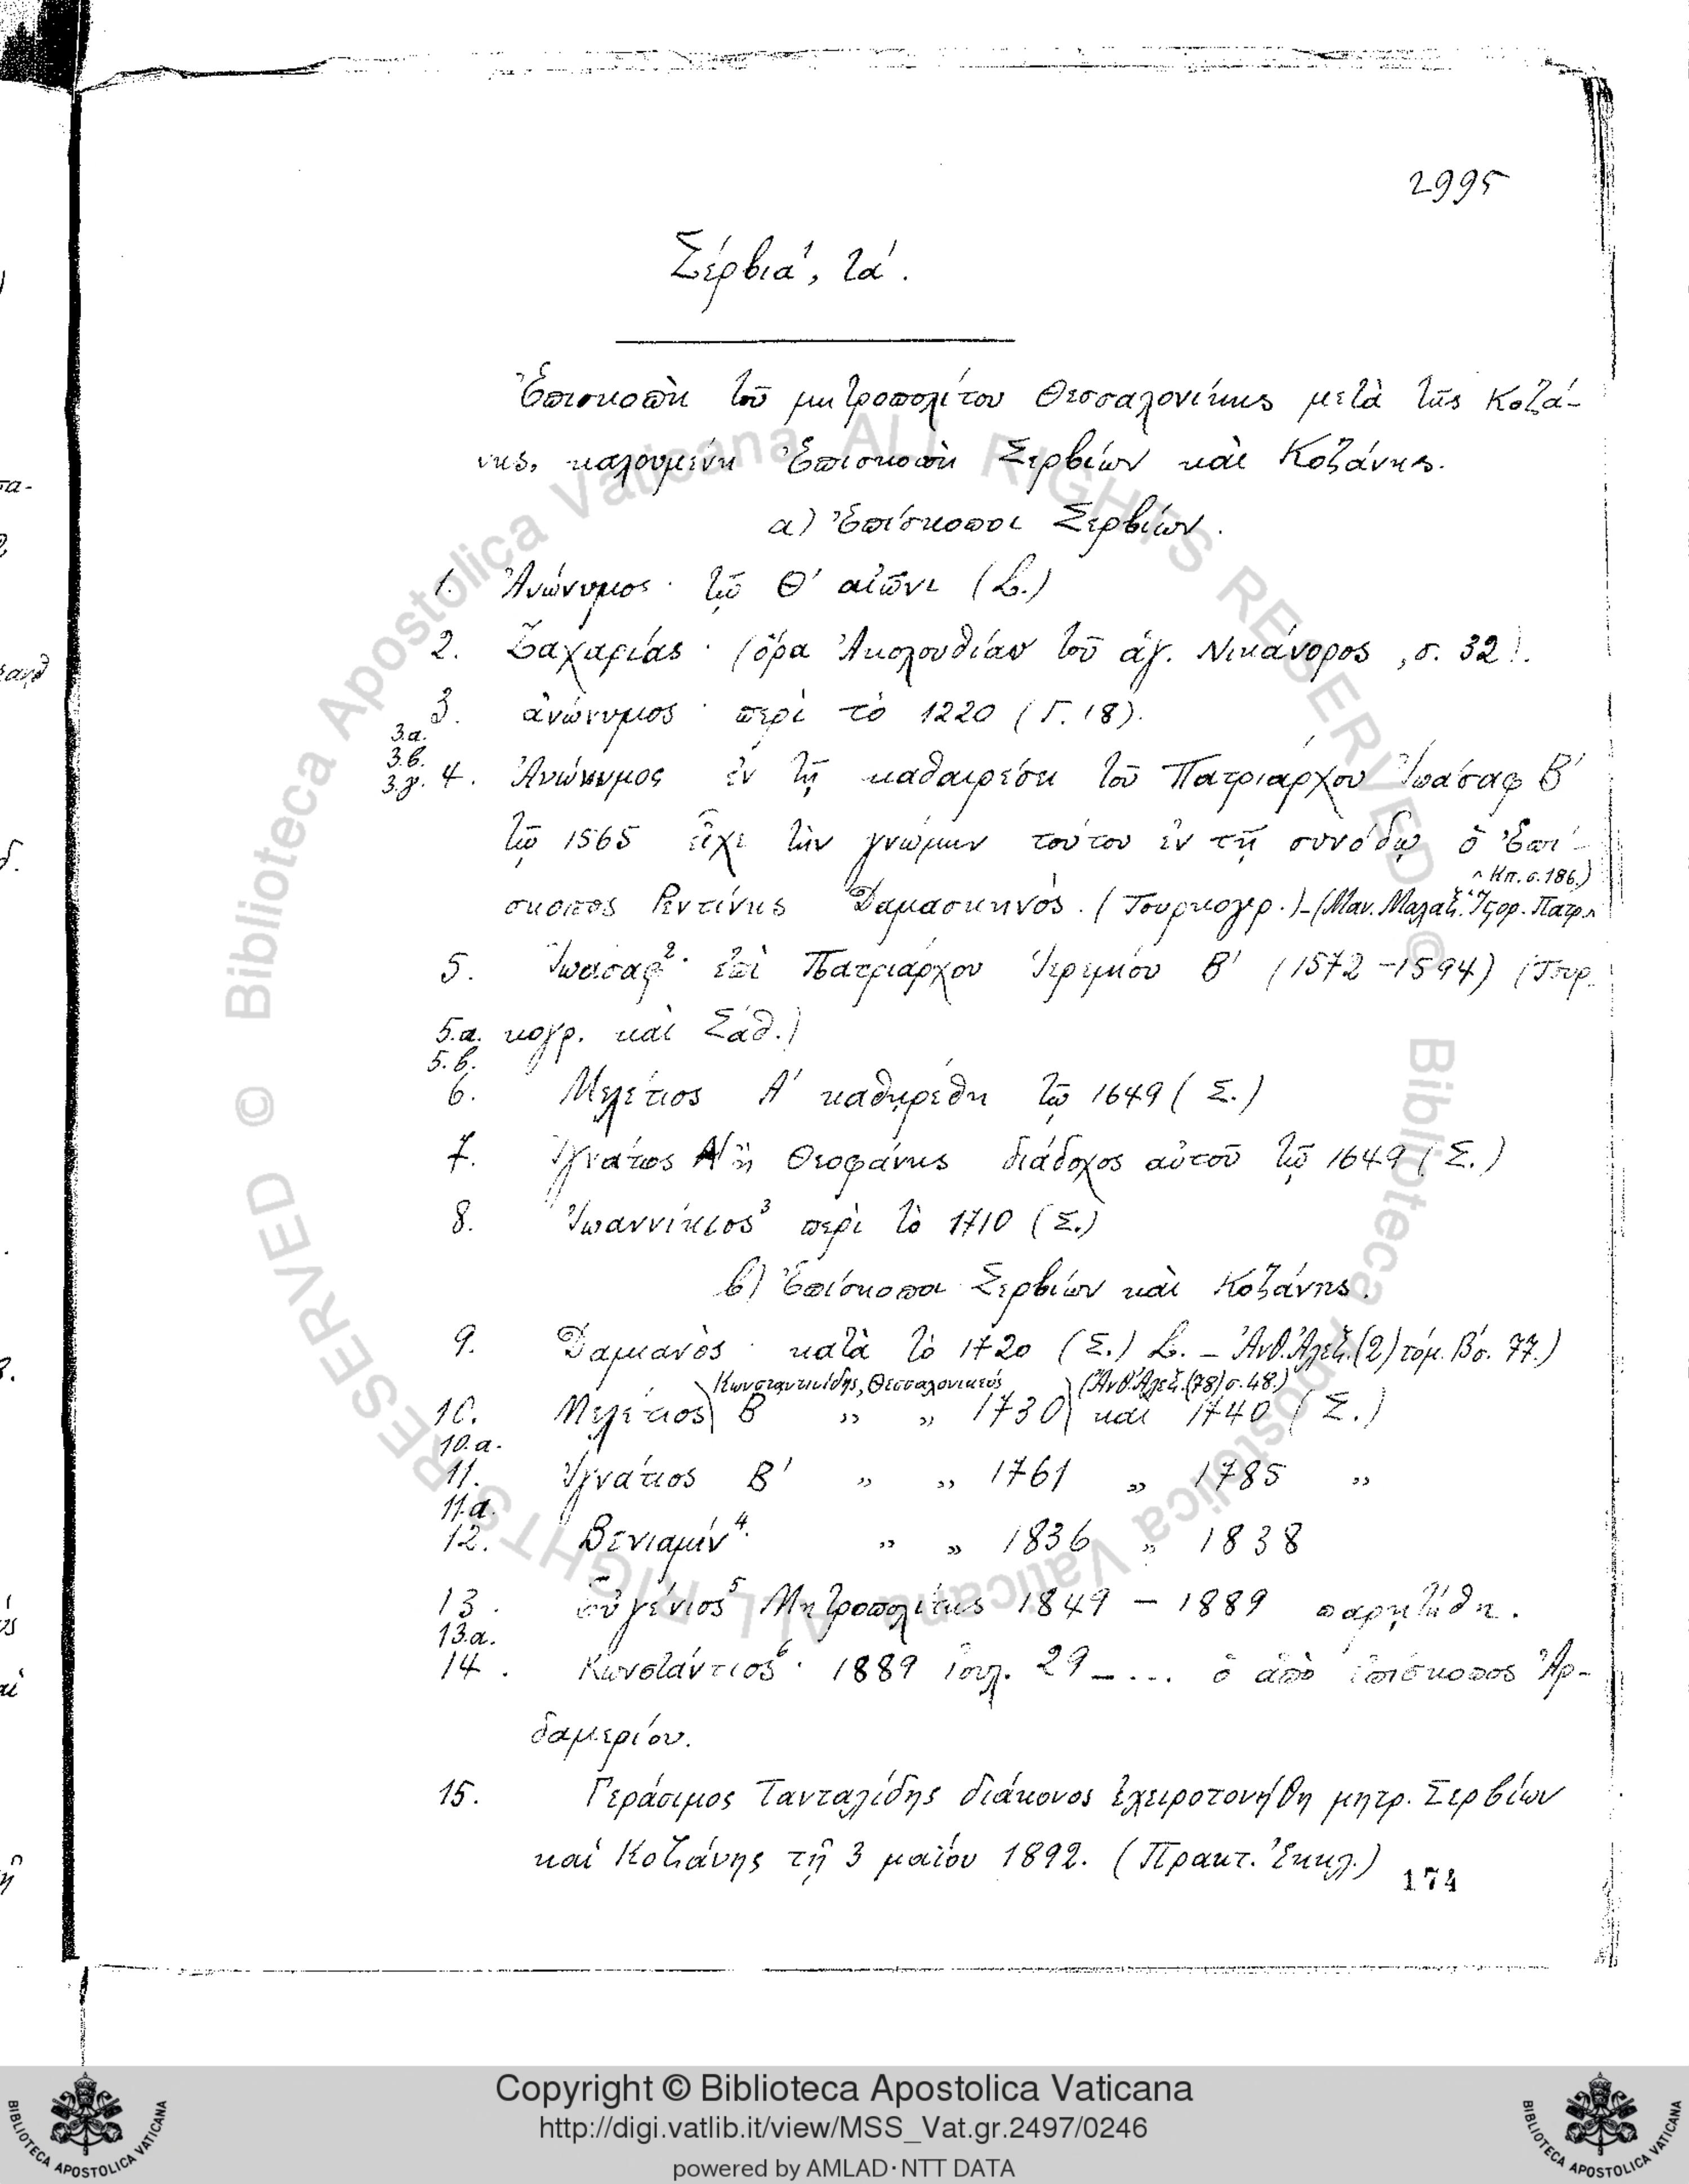 2995
Σέρβια¹, τά.
Ἐπισκοπὴ τοῦ μητροπολίτου Θεσσαλονίκης μετὰ τῆς Κοζά-
νης, καλουμένη Ἐπισκοπὴ Σερβίων καὶ Κοζάνης.
α) Ἐπίσκοποι Σερβίων.
1. Ἀνώνυμος · τῷ Θ' αἰῶνι (L.)
2. Ζαχαρίας · (ὅρα Ἀκολουθίαν τοῦ ἁγ. Νικάνορος, σ. 32).
3. ἀνώνυμος · περὶ τὸ 1220 (Γ. 18).
3.α.
3.β.
3.γ. 4. Ἀνώνυμος ἐν τῇ καθαιρέσει τοῦ Πατριάρχου Ἰωάσαφ Β'
τῷ 1565 εἶχε τὴν γνώμην τούτου ἐν τῇ συνόδῳ ὁ Ἐπί-
^ Κπ. σ. 186.)
σκοπος Ρεντίνης Δαμασκηνὸς. (Τουρκογρ.) - (Μαν. Μαλαξ. Ἱστορ. Πατρ. ^
5. Ἰωάσαφ² · ἐπὶ Πατριάρχου Ἱερεμίου Β' (1572-1594) (Τουρ-
5.α. κογρ. καὶ Σάθ.)
5.β.
6. Μελέτιος Α' καθῃρέθη τῷ 1649 (Σ.)
7. Ἰγνάτιος Α' ἢ Θεοφάνης διάδοχος αὐτοῦ τῷ 1649 (Σ.)
8. Ἰωαννίκιος³ περὶ τὸ 1710 (Σ.)
β) Ἐπίσκοποι Σερβίων καὶ Κοζάνης.
9. Δαμιανὸς · κατὰ τὸ 1720 (Σ.) L. - Ἀνθ. Ἀλεξ. (2) τόμ. Β σ. 77.)
Κωνσταντινίδης, Θεσσαλονικεύς (Ἀνθ. Ἀλεξ. (78) σ. 48.)
10. Μελέτιος Β' „ „ 1730 καὶ 1740 (Σ.)
10.α.
11. Ἰγνάτιος Β' „ „ 1761 „ 1785 „
11.α.
12. Βενιαμίν⁴. „ „ 1836 „ 1838
13. Εὐγένιος⁵ Μητροπολίτης 1849 - 1889 παρῃτήθη.
13.α.
14. Κωνστάντιος⁶ · 1889 ἰουλ. 29 - ... ὁ ἀπὸ ἐπίσκοπος Ἀρ-
δαμερίου.
15. Γεράσιμος Τανταλίδης διάκονος ἐχειροτονήθη μητρ. Σερβίων
καί Κοζάνης τῇ 3 μαΐου 1892. (Πρακτ. Ἐκκλ.)
174
Copyright © Biblioteca Apostolica Vaticana
http://digi.vatlib.it/view/MSS_Vat.gr.2497/0246
powered by AMLAD·NTT DATA